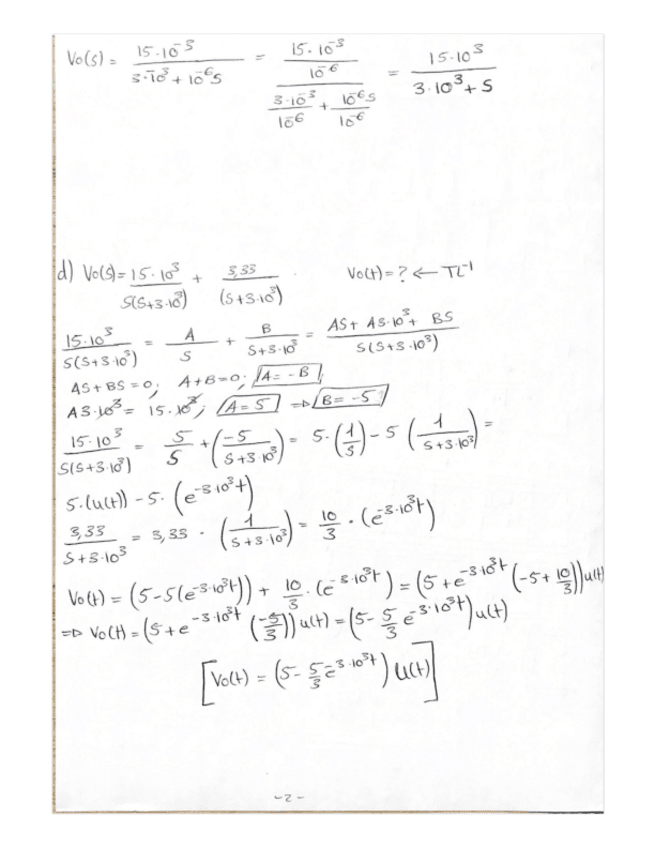 Vo(s) = 15·10⁻³ / (3·10⁻³ + 10⁻⁶s) = (15·10⁻³ / 10⁻⁶) / (3·10⁻³ / 10⁻⁶ + 10⁻⁶s / 10⁻⁶) = 15·10³ / (3·10³ + s)
d) Vo(s) = 15·10³ / (s(s+3·10³)) + 3,33 / (s+3·10³) Vo(t) = ? ← TL⁻¹
15·10³ / (s(s+3·10³)) = A / s + B / (s+3·10³) = (As + A3·10³ + Bs) / (s(s+3·10³))
As + Bs = 0; A+B = 0; A = -B
A3·10³ = 15·10³; A = 5 ⇒ B = -5
15·10³ / (s(s+3·10³)) = 5 / s + (-5 / (s+3·10³)) = 5·(1/s) - 5 (1 / (s+3·10³)) =
5·(u(t)) - 5·(e^(-3·10³t))
3,33 / (s+3·10³) = 3,33 · (1 / (s+3·10³)) = 10/3 · (e^(-3·10³t))
Vo(t) = (5-5(e^(-3·10³t))) + 10/3·(e^(-3·10³t)) = (5 + e^(-3·10³t) (-5 + 10/3)) u(t)
⇒ Vo(t) = (5 + e^(-3·10³t) (-5/3)) u(t) = (5 - 5/3 e^(-3·10³t)) u(t)
[Vo(t) = (5 - 5/3 e^(-3·10³t)) u(t)]
-2-